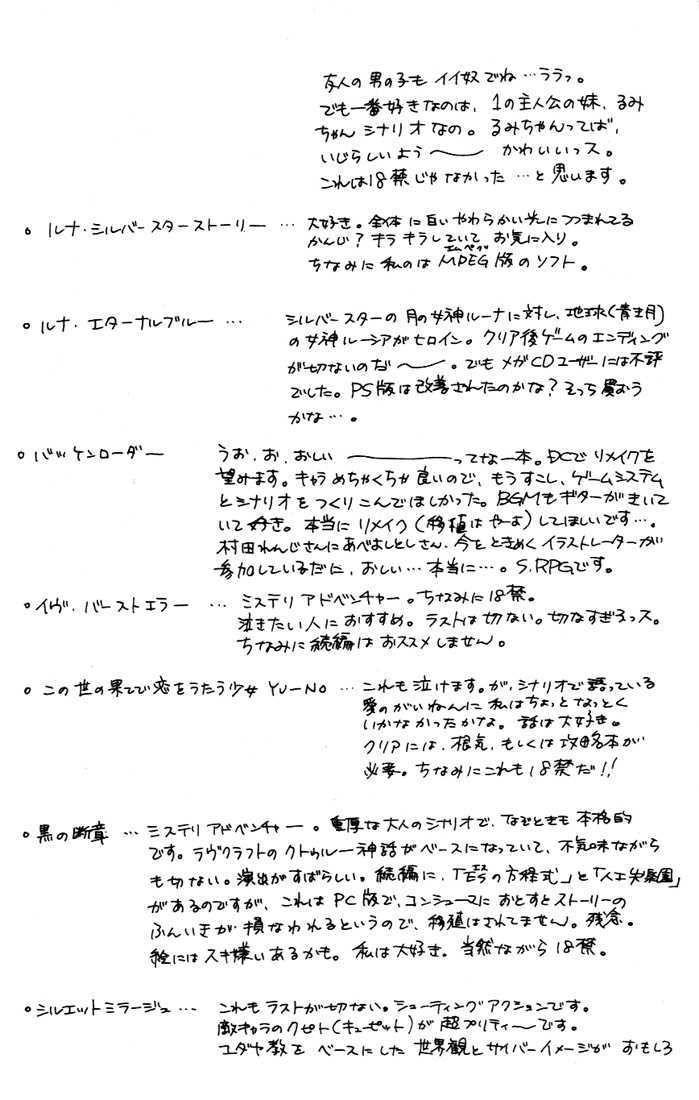 友人の男の子もイイ奴でね…ララっ。
でも一番好きなのは、1の主人公の妹、るみ
ちゃんシナリオなの。るみちゃんってば、
いじらしいよう〜 かわいいっス。
これは18禁じゃなかった…と思います。
○ ルナ・シルバースターストーリー … 大好き。全体に白いやわらかい光につつまれてる
かんじ?キラキラしていて、お気に入り。
ちなみに私のは MPEG版のソフト。
エムペグ
○ ルナ・エターナルブルー … シルバースターの月の女神ルーナに対し、地球(青き月)
の女神ルーシアがヒロイン。クリア後ゲームのエンディング
が切ないのだ〜。でもメガCDユーザーには不評
でした。PS版は改善されたのかな?そっち買おう
かな…。
○ バッケンローダー うお、お、おしい ーーってな一本。DCでリメイクを
望みます。キャラめちゃくちゃ良いので、もうすこし、ゲームシステム
とシナリオをつくりこんでほしかった。BGMもギターがきいて
いて好き。本当にリメイク(移植はやーよ)してほしいです…。
村田れんじさんにあべよしとしさん、今をときめくイラストレーターが
参加しているだに、おしい…本当に…。S.RPGです。
○ イヴ・バーストエラー … ミステリアドベンチャー。ちなみに18禁。
泣きたい人におすすめ。ラストは切ない。切なすぎるっス。
ちなみに続編はおススメしません。
○ この世の果てで恋をうたう少女 YU-NO … これも泣けます。が、シナリオで語っている
愛のがいねんに私はちょっとなっとく
いかなかったかな。話は大好き。
クリアには、根気、もしくは攻略本が
必要。ちなみにこれも18禁だ!!
○ 黒の断章 … ミステリアドベンチャー。重厚な大人のシナリオで、なぞときも本格的
です。ラヴクラフトのクトゥルー神話がベースになっていて、不気味ながら
も切ない。演出がすばらしい。続編に、「Esの方程式」と「人工失楽園」
があるのですが、これはPC版で、コンシューマにおとすとストーリーの
ふんいきが損なわれるというので、移植はされてません。残念。
絵にはスキ嫌いあるかも。私は大好き。当然ながら18禁。
○ シルエットミラージュ … これもラストが切ない。シューティングアクションです。
敵キャラのクピト(キューピット)が超プリティーです。
ユダヤ教をベースにした世界観とサイバーイメージがおもしろ